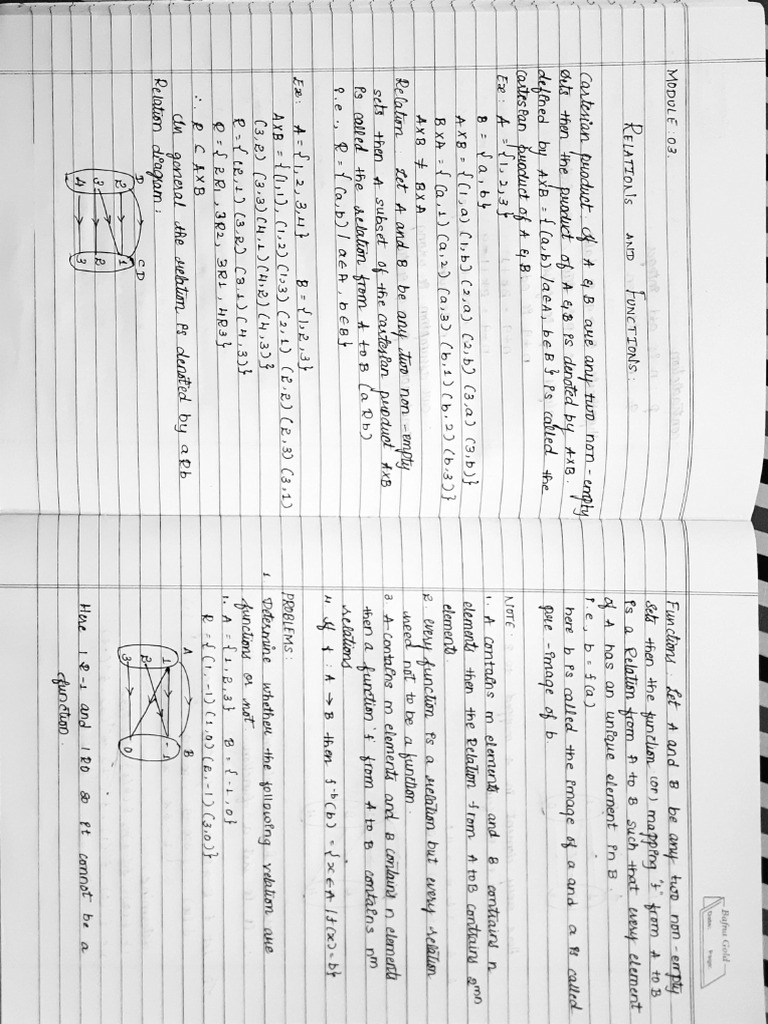 MODULE: 03.
RELATIONS AND FUNCTIONS:
Cartesian product: If A & B are any two non-empty
sets then the product of A & B is denoted by A×B.
defined by A×B = {(a,b) /a∈A, b∈B} is called the
cartesian product of A & B.
Ex: A = {1,2,3}
B = {a,b}
A×B = {(1,a) (1,b) (2,a) (2,b) (3,a) (3,b)}
B×A = {(a,1) (a,2) (a,3) (b,1) (b,2) (b,3)}
A×B ≠ B×A
Relation: Let A and B be any two non-empty
sets then A subset of the cartesian product A×B
is called the relation from A to B (aRb)
i.e., R = {(a,b) / a∈A, b∈B}
Ex: A = {1,2,3,4} B = {1,2,3}
A×B = {(1,1), (1,2) (1,3) (2,1) (2,2) (2,3) (3,1)
(3,2) (3,3) (4,1) (4,2) (4,3)}
R = {(2,1) (3,2) (3,1) (4,3)}
R = {2R1, 3R2, 3R1, 4R3}
∴ R ⊂ A×B
In general the relation is denoted by aRb
Relation diagram:
D CD
2 1
3 2
4 3
Bafna Gold
Date: Page:
Functions: Let A and B be any two non-empty
sets then the function (or) mapping 'f' from A to B
is a Relation from A to B such that every element
of A has an unique element in B.
i.e., b = f(a)
here b is called the image of a and a is called
pre-image of b.
NOTE:
1. A contains m elements and B contrains n
elements then the Relation from A to B contrains 2^mn
elements
2. every function is a relation but every relation
need not to be a function.
3. A contains m elements and B contains n elements
then a function 'f' from A to B contains n^m
relations
4. If f: A → B then f^-b(b) = {x∈A /f(x)=b}
PROBLEMS:
1 Determine whether the following relation are
functions or not
1. A = {1,2,3} B = {-1,0}
R = {(1,-1) (1,0) (2,-1) (3,0)}
A B
1 -1
2
3 0
Here 1R-1 and 1R0 so it connot be a
function.